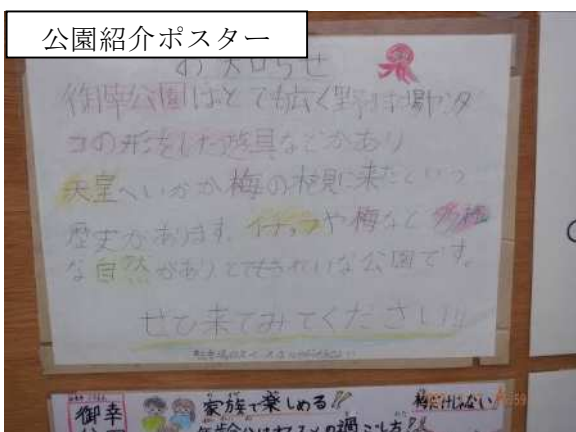 公園紹介ポスター
お知らせ
御幸公園はとても広く野球場やタ
コの形をした遊具などがあり
天皇へいかが梅の花見に来たという
歴史があります。イチョウや梅など多種
な自然がありとてもきれいな公園です。
ぜひ来てみてください!!
御幸
家族で楽しめる!!
梅だけじゃない
の過ごし方